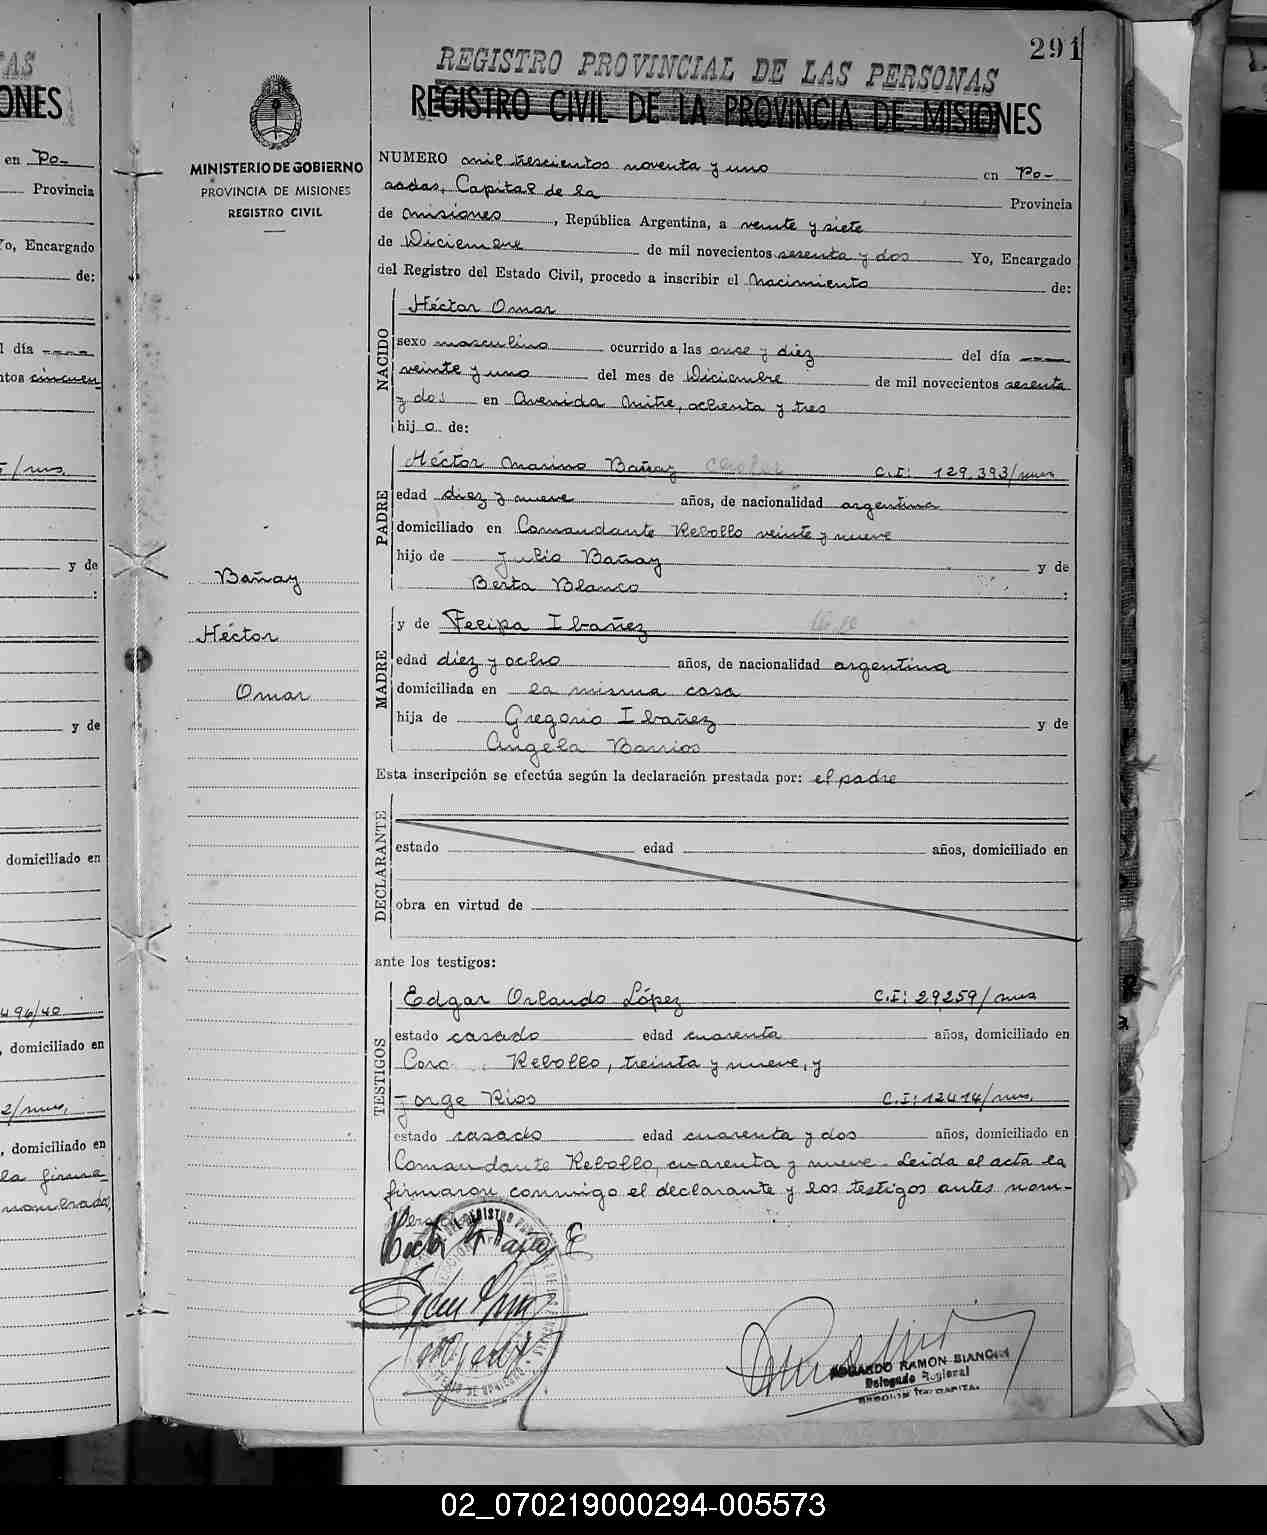 291
REGISTRO PROVINCIAL DE LAS PERSONAS
REGISTRO CIVIL DE LA PROVINCIA DE MISIONES
MINISTERIO DE GOBIERNO
PROVINCIA DE MISIONES
REGISTRO CIVIL
Bañay
Héctor
Omar
NUMERO mil trescientos noventa y uno en Po-
sadas, Capital de la Provincia
de Misiones, República Argentina, a veinte y siete
de Diciembre de mil novecientos sesenta y dos Yo, Encargado
del Registro del Estado Civil, procedo a inscribir el Nacimiento de:
NACIDO
Héctor Omar
sexo masculino ocurrido a las once y diez del día ----
veinte y uno del mes de Diciembre de mil novecientos sesenta
y dos en Avenida Mitre, ochenta y tres
hijo de:
PADRE
Héctor Marino Bañay C.I: 129.393/mnes
edad diez y nueve años, de nacionalidad argentina
domiciliado en Comandante Rebollo veinte y nueve
hijo de Julio Bañay y de
Berta Blanco :
MADRE
y de Felipa Ibañez
edad diez y ocho años, de nacionalidad argentina
domiciliada en la misma casa
hija de Gregorio Ibañez y de
Angela Barrios
Esta inscripción se efectúa según la declaración prestada por: el padre
DECLARANTE
estado edad años, domiciliado en
obra en virtud de
ante los testigos:
TESTIGOS
Edgar Orlando López C.I: 29259/mns
estado casado edad cuarenta años, domiciliado en
Rebollo, treinta y nueve, y
Jorge Rios C.I: 12414/mns.
estado casado edad cuarenta y dos años, domiciliado en
Comandante Rebollo, cuarenta y nueve. Leída el acta la
firmaron conmigo el declarante y los testigos antes nom-
EDGARDO RAMON BIANCHI
Delegado Regional
02_070219000294-005573